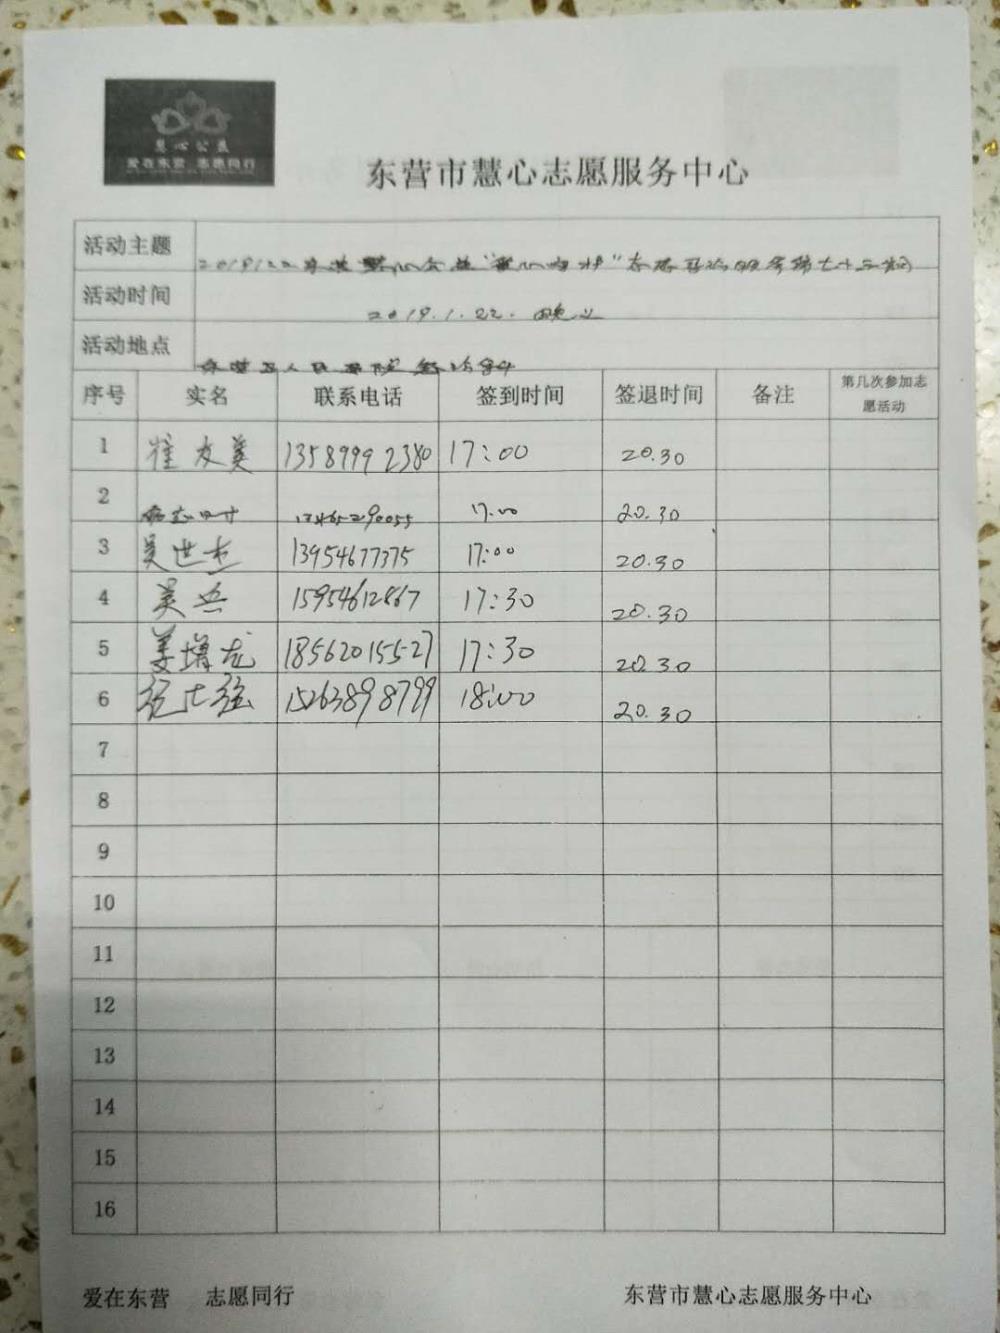 慧心公益
爱在东营 志愿同行
东营市慧心志愿服务中心
活动主题
活动时间 2019.1.22. 晚上
活动地点
序号 实名 联系电话 签到时间 签退时间 备注 第几次参加志愿活动
1 崔友美 13589992380 17:00 20.30
2 17:00 20.30
3 吴世杰 13954677375 17:00 20.30
4 吴兵 15954612867 17:30 20.30
5 姜增龙 18562015527 17:30 20.30
6 15263898799 18:00 20.30
7
8
9
10
11
12
13
14
15
16
爱在东营 志愿同行 东营市慧心志愿服务中心